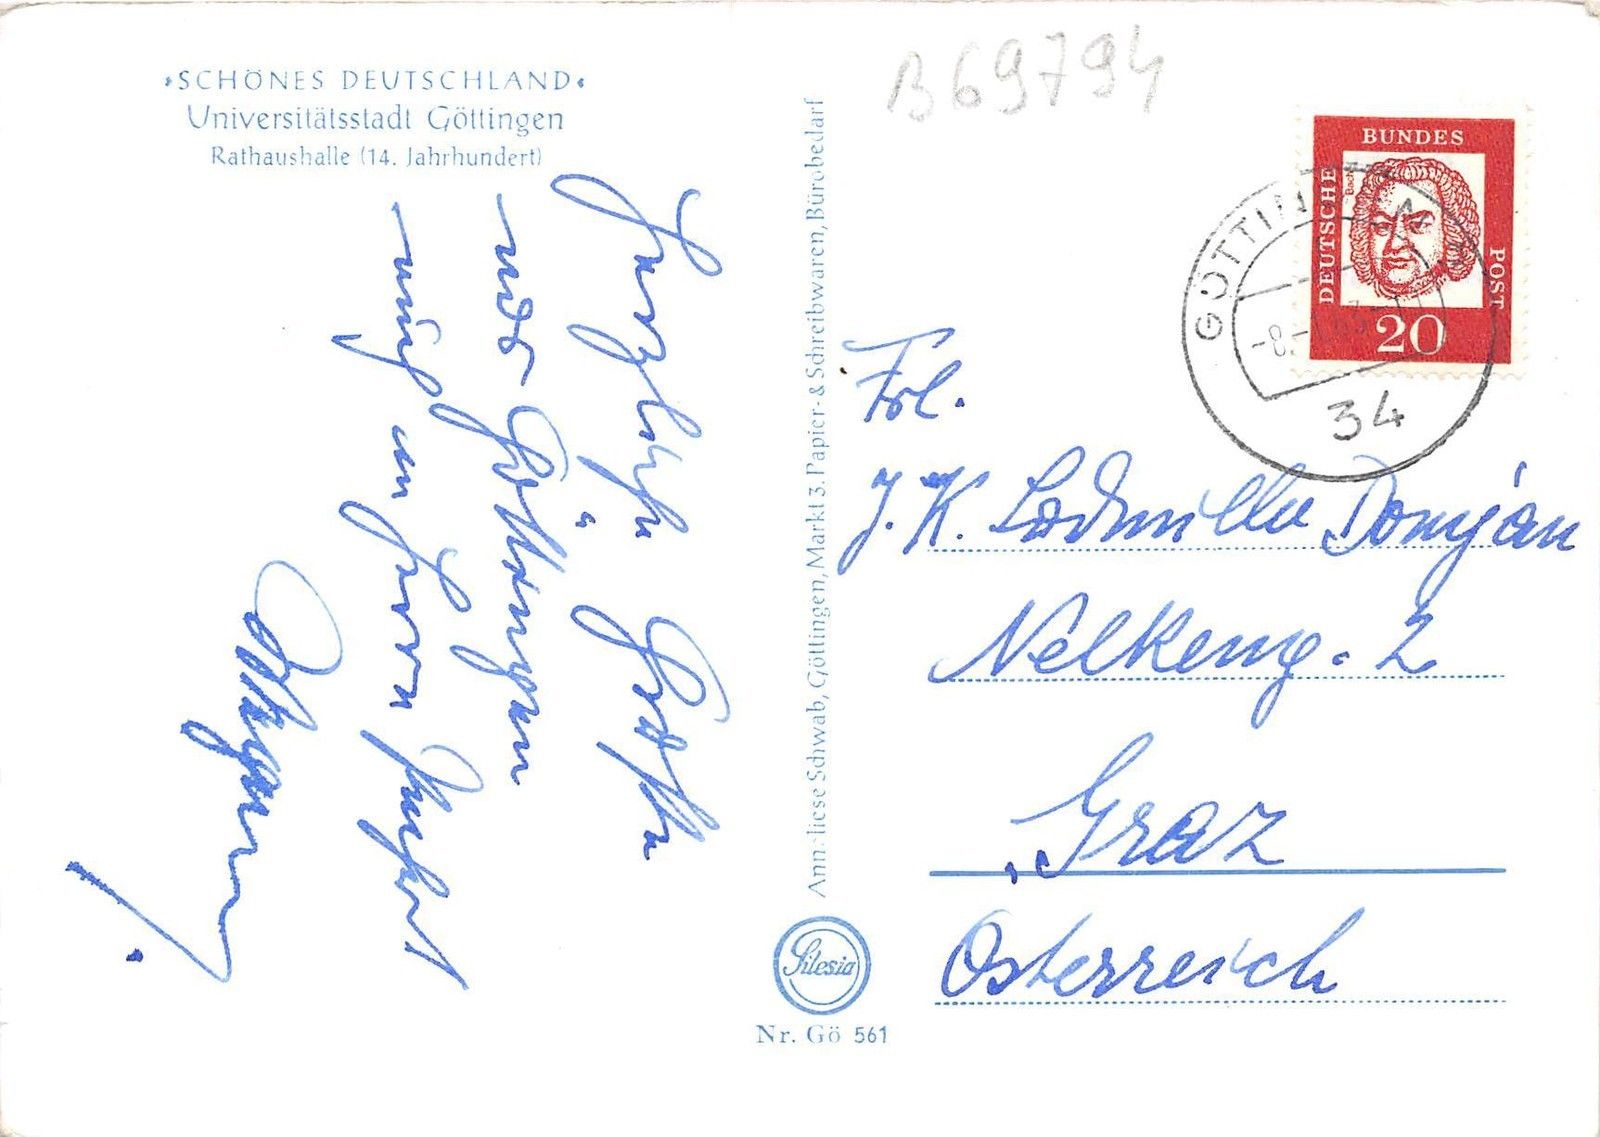 »SCHÖNES DEUTSCHLAND«
Universitätsstadt Göttingen
Rathaushalle (14. Jahrhundert)
Herzliche Grüße
aus Göttingen
auch an Herrn
Anneliese Schwab, Göttingen, Markt 3. Papier- & Schreibwaren, Bürobedarf
Silesia
Nr. Gö 561
B69794
BUNDES
DEUTSCHE
POST
Bach
20
GÖTTINGEN
34
Frl.
J. K. Ludmilla Domján
Nelkeng. 2
Graz
Österreich